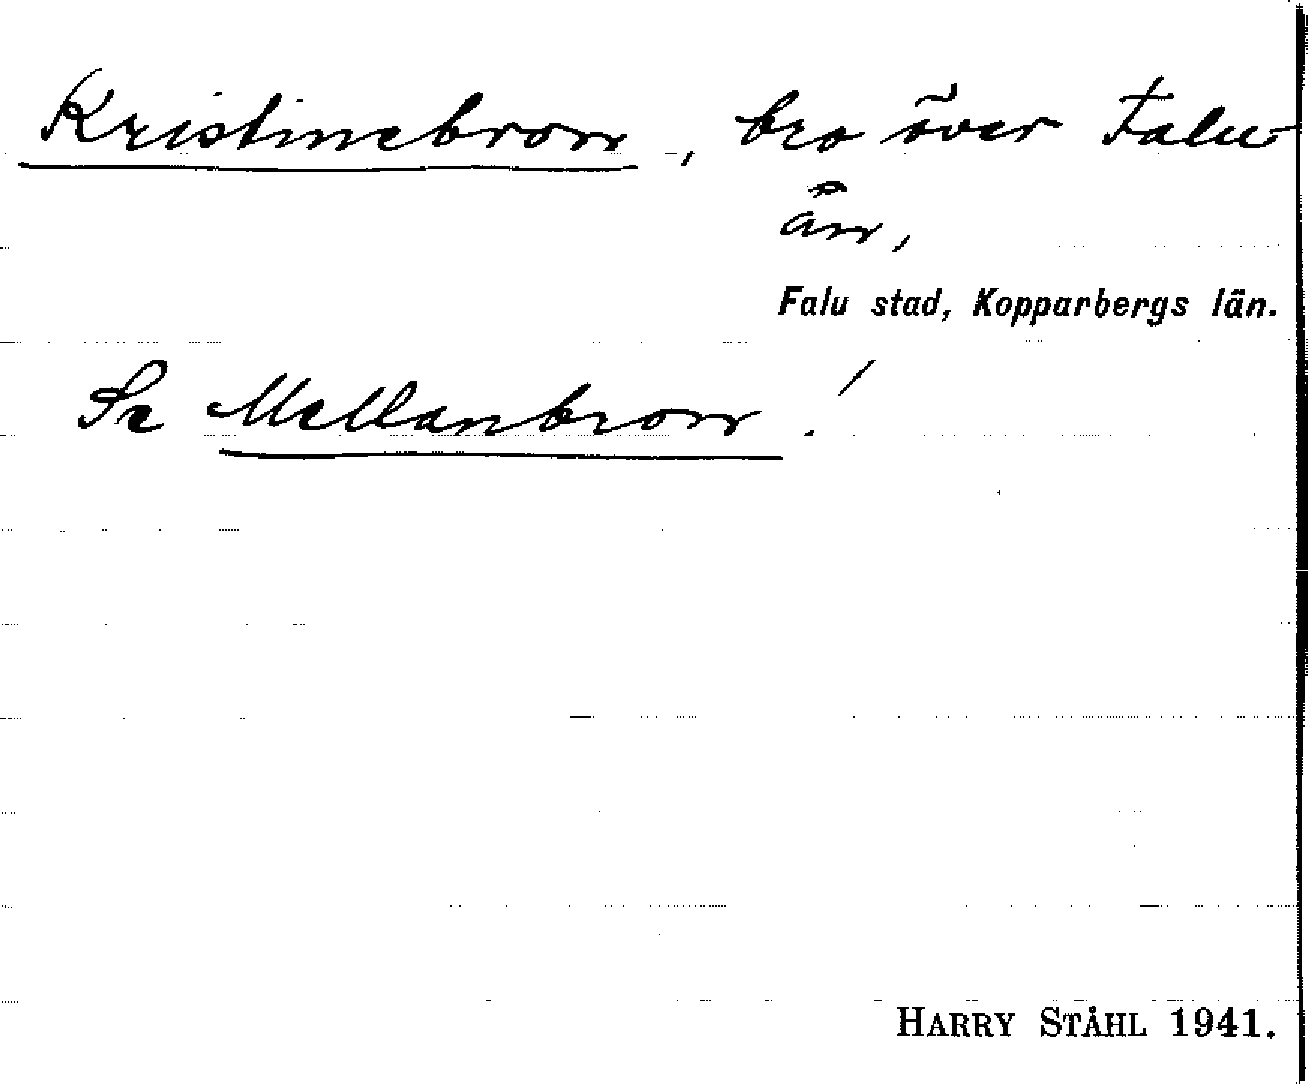 Kristinebron, bro över Falu
ån,
Falu stad, Kopparbergs län.
Se Mellanbron!
HARRY STÅHL 1941.